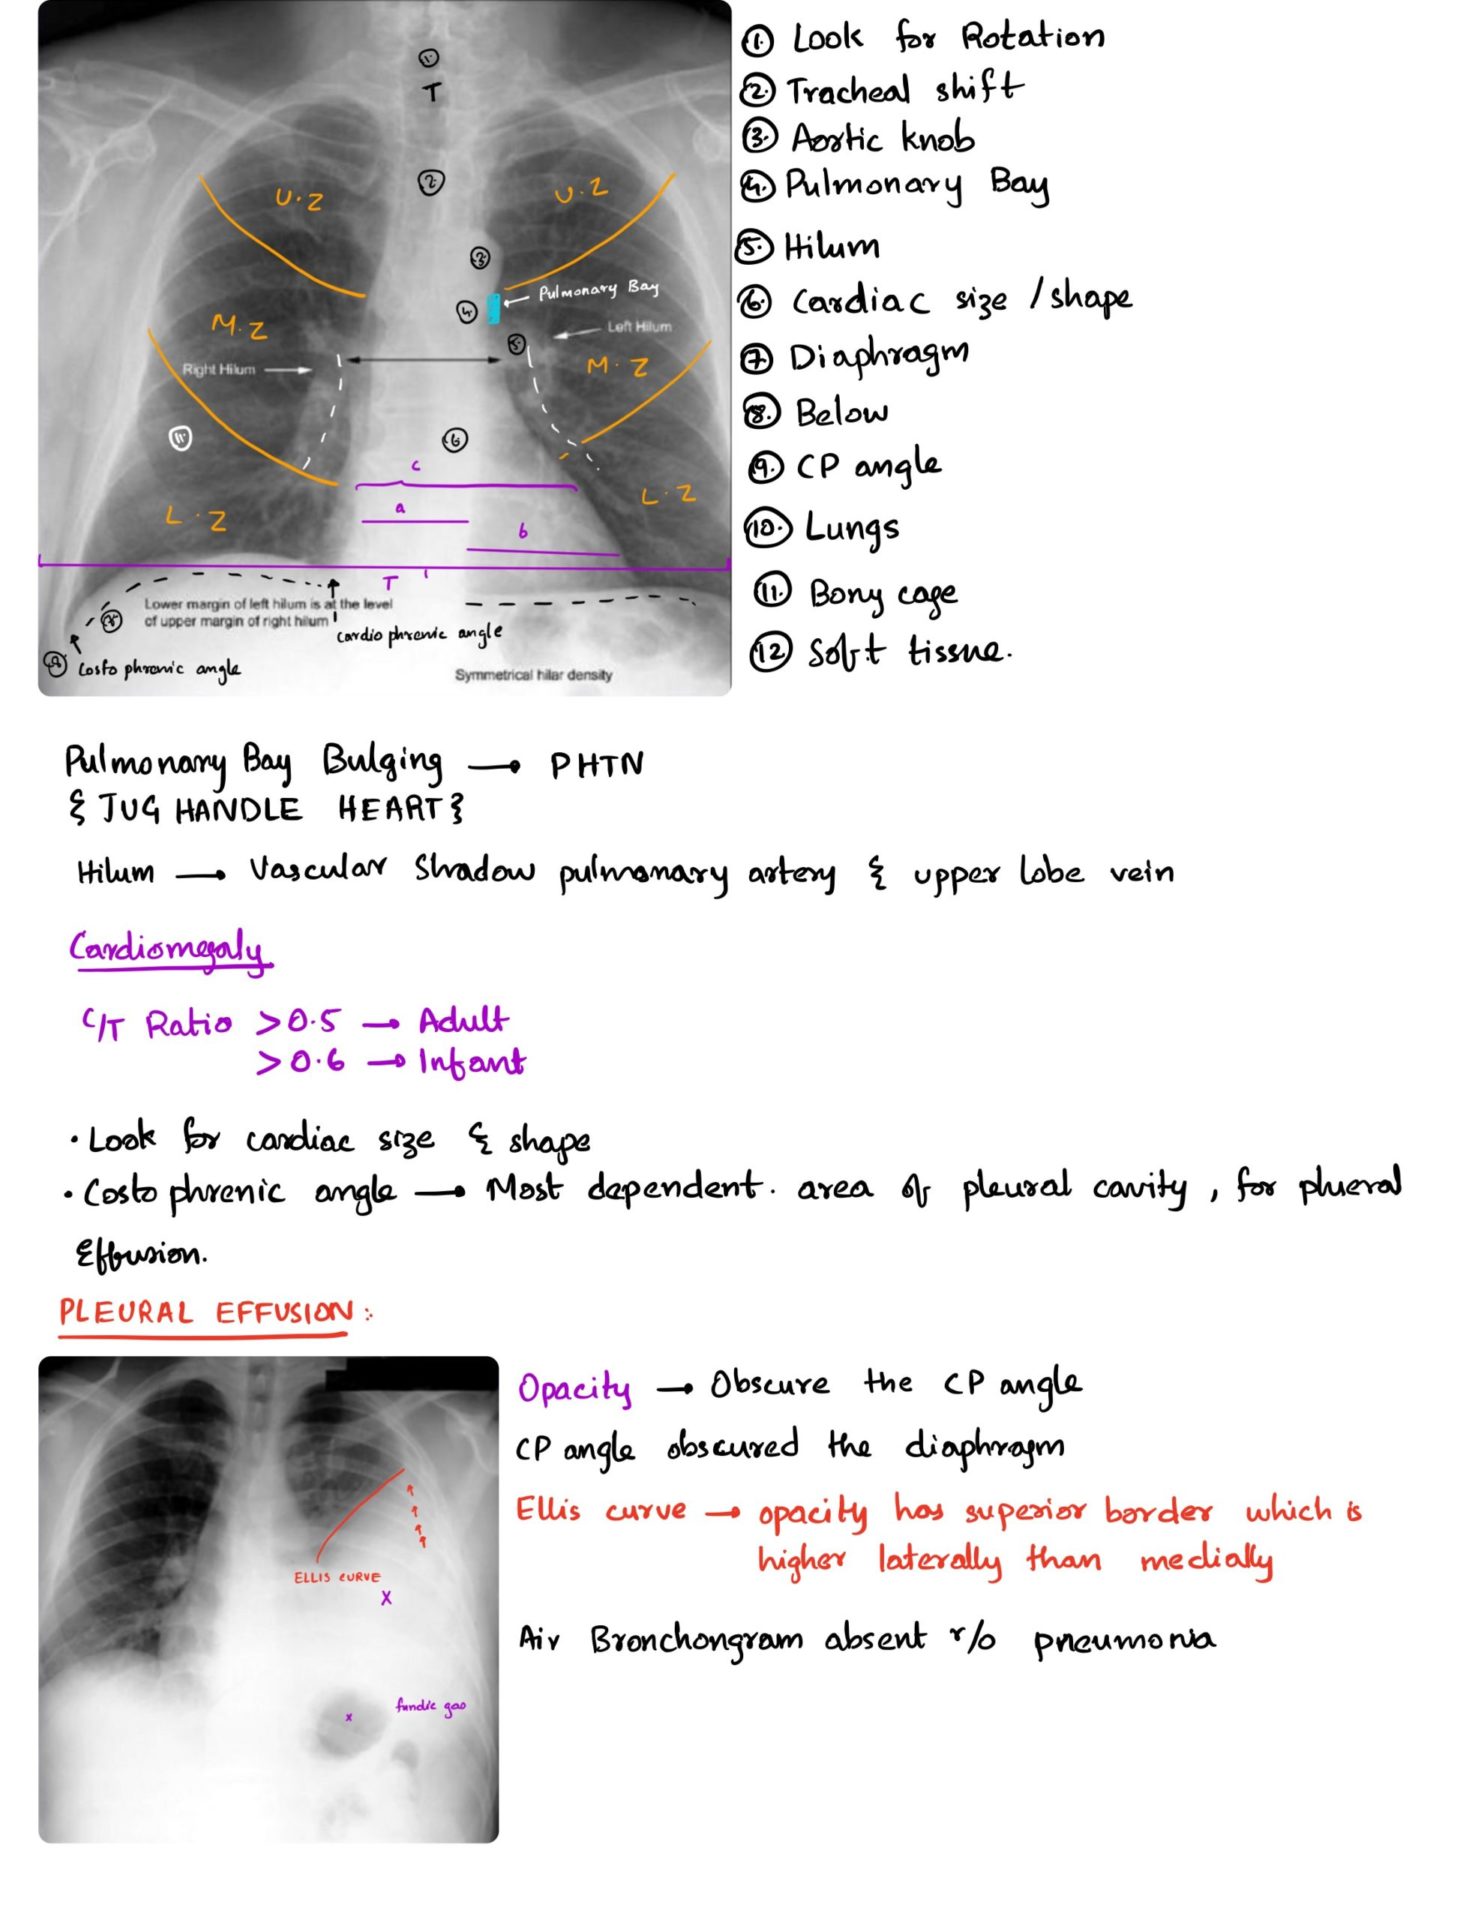 ① Look for Rotation
② Tracheal shift
③ Aortic knob
④ Pulmonary Bay
⑤ Hilum
⑥ Cardiac size / shape
⑦ Diaphragm
⑧ Below
⑨ CP angle
⑩ Lungs
⑪ Bony cage
⑫ Soft tissue.
①
T
②
U.Z U.Z
③
Pulmonary Bay
④
Left Hilum
M.Z
⑤
M.Z
Right Hilum
⑪
⑥
c
L.Z
a
L.Z
b
T
Lower margin of left hilum is at the level
of upper margin of right hilum
cardio phrenic angle
Costo phrenic angle
Symmetrical hilar density
Pulmonary Bay Bulging → PHTN
{ JUG HANDLE HEART }
Hilum → Vascular Shadow pulmonary artery & upper lobe vein
Cardiomegaly
C/T Ratio >0.5 → Adult
>0.6 → Infant
• Look for cardiac size & shape
• Costo phrenic angle → Most dependent. area of pleural cavity, for plueral
Effusion.
PLEURAL EFFUSION:
Opacity → Obscure the CP angle
CP angle obscured the diaphragm
Ellis curve → opacity has superior border which is
higher laterally than medially
ELLIS CURVE
x
Air Bronchongram absent r/o pneumonia
x fundic gas